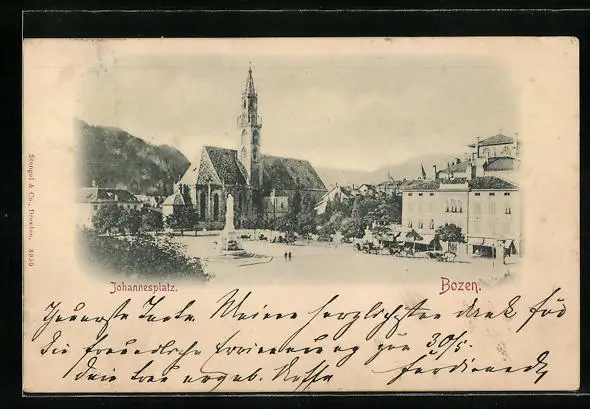 Stengel & Co., Dresden. 3950
Johannesplatz. Bozen.
Theuerste Tante. Meinen herzlichsten dank für
die freundliche Erinnerung zum 30/5.
Dein treu ergeb. Neffe
Ferdinand